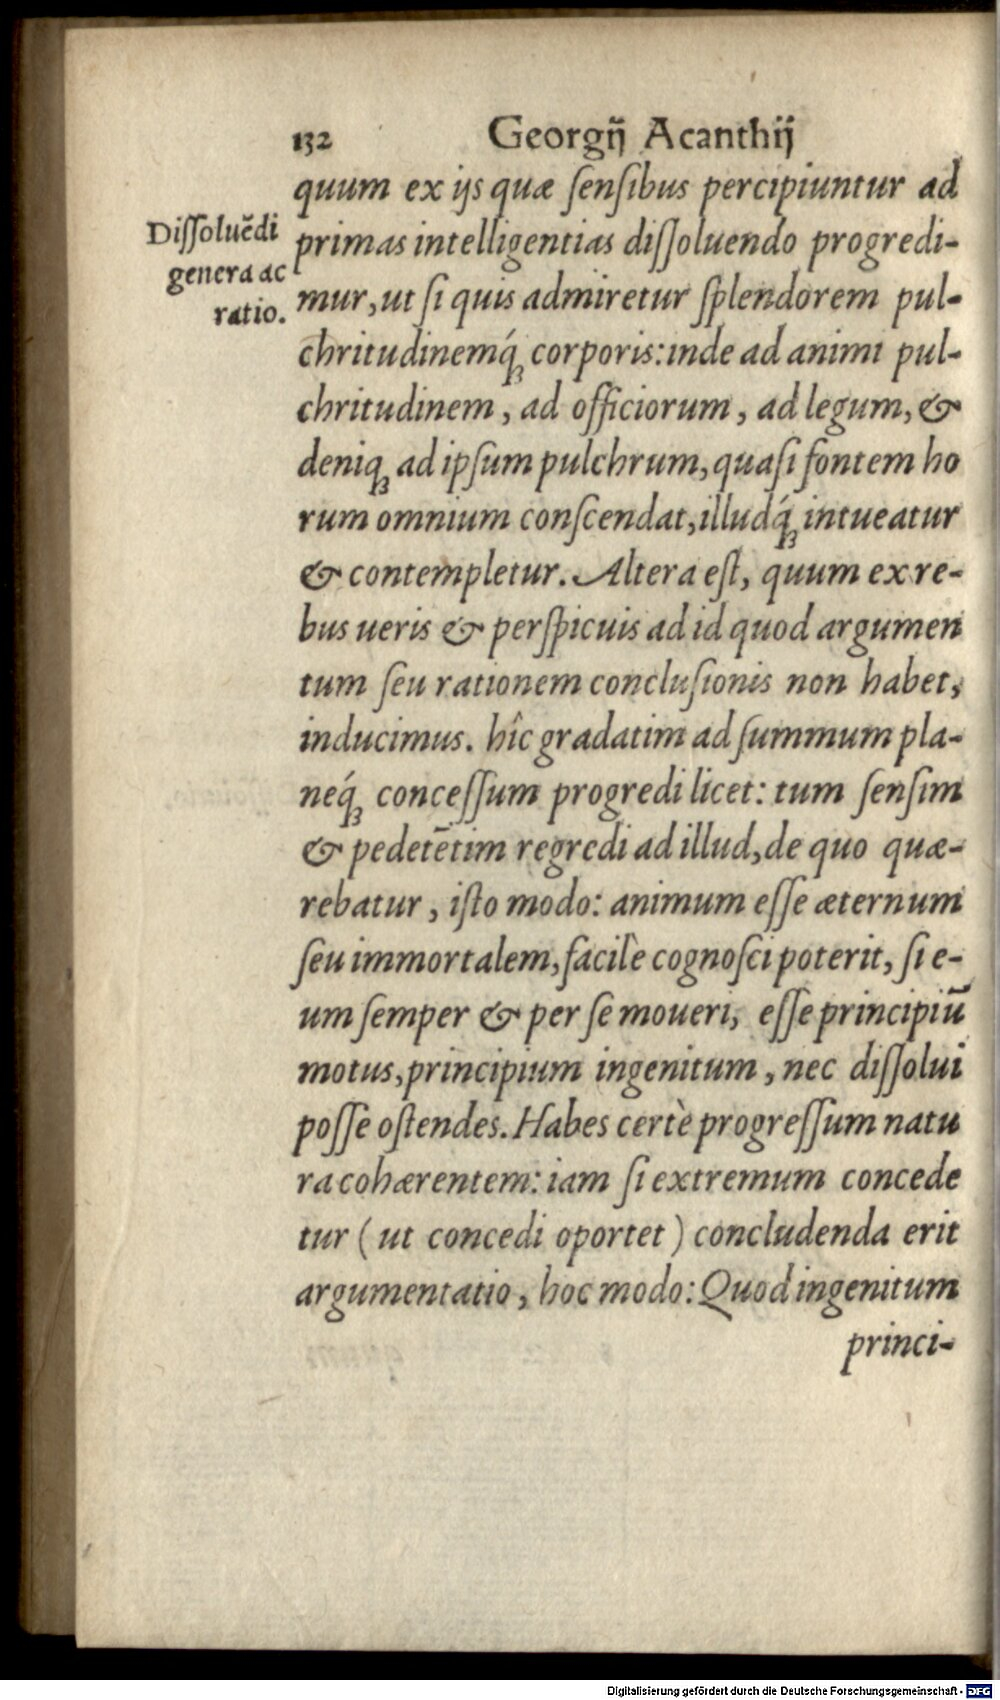 132 Georgij Acanthij
quum ex ijs quæ ſenſibus percipiuntur ad
Diſſoluẽdi
genera ac
ratio.
primas intelligentias diſſoluendo progredi-
mur, ut ſi quis admiretur ſplendorem pul-
chritudinemq́; corporis: inde ad animi pul-
chritudinem, ad officiorum, ad legum, &
deniq; ad ipſum pulchrum, quaſi fontem ho
rum omnium conſcendat, illudq́; intueatur
& contempletur. Altera eſt, quum ex re-
bus ueris & perſpicuis ad id quod argumen
tum ſeu rationem concluſionis non habet,
inducimus. hîc gradatim ad ſummum pla-
neq́; conceſſum progredi licet: tum ſenſim
& pedetẽtim regredi ad illud, de quo quæ-
rebatur, iſto modo: animum eſſe æternum
ſeu immortalem, facilè cognoſci poterit, ſi e-
um ſemper & per ſe moueri, eſſe principiũ
motus, principium ingenitum, nec diſſolui
poſſe oſtendes. Habes certè progreſſum natu
ra cohærentem: iam ſi extremum concede
tur (ut concedi oportet) concludenda erit
argumentatio, hoc modo: Quod ingenitum
princi-
Digitalisierung gefördert durch die Deutsche Forschungsgemeinschaft - DFG